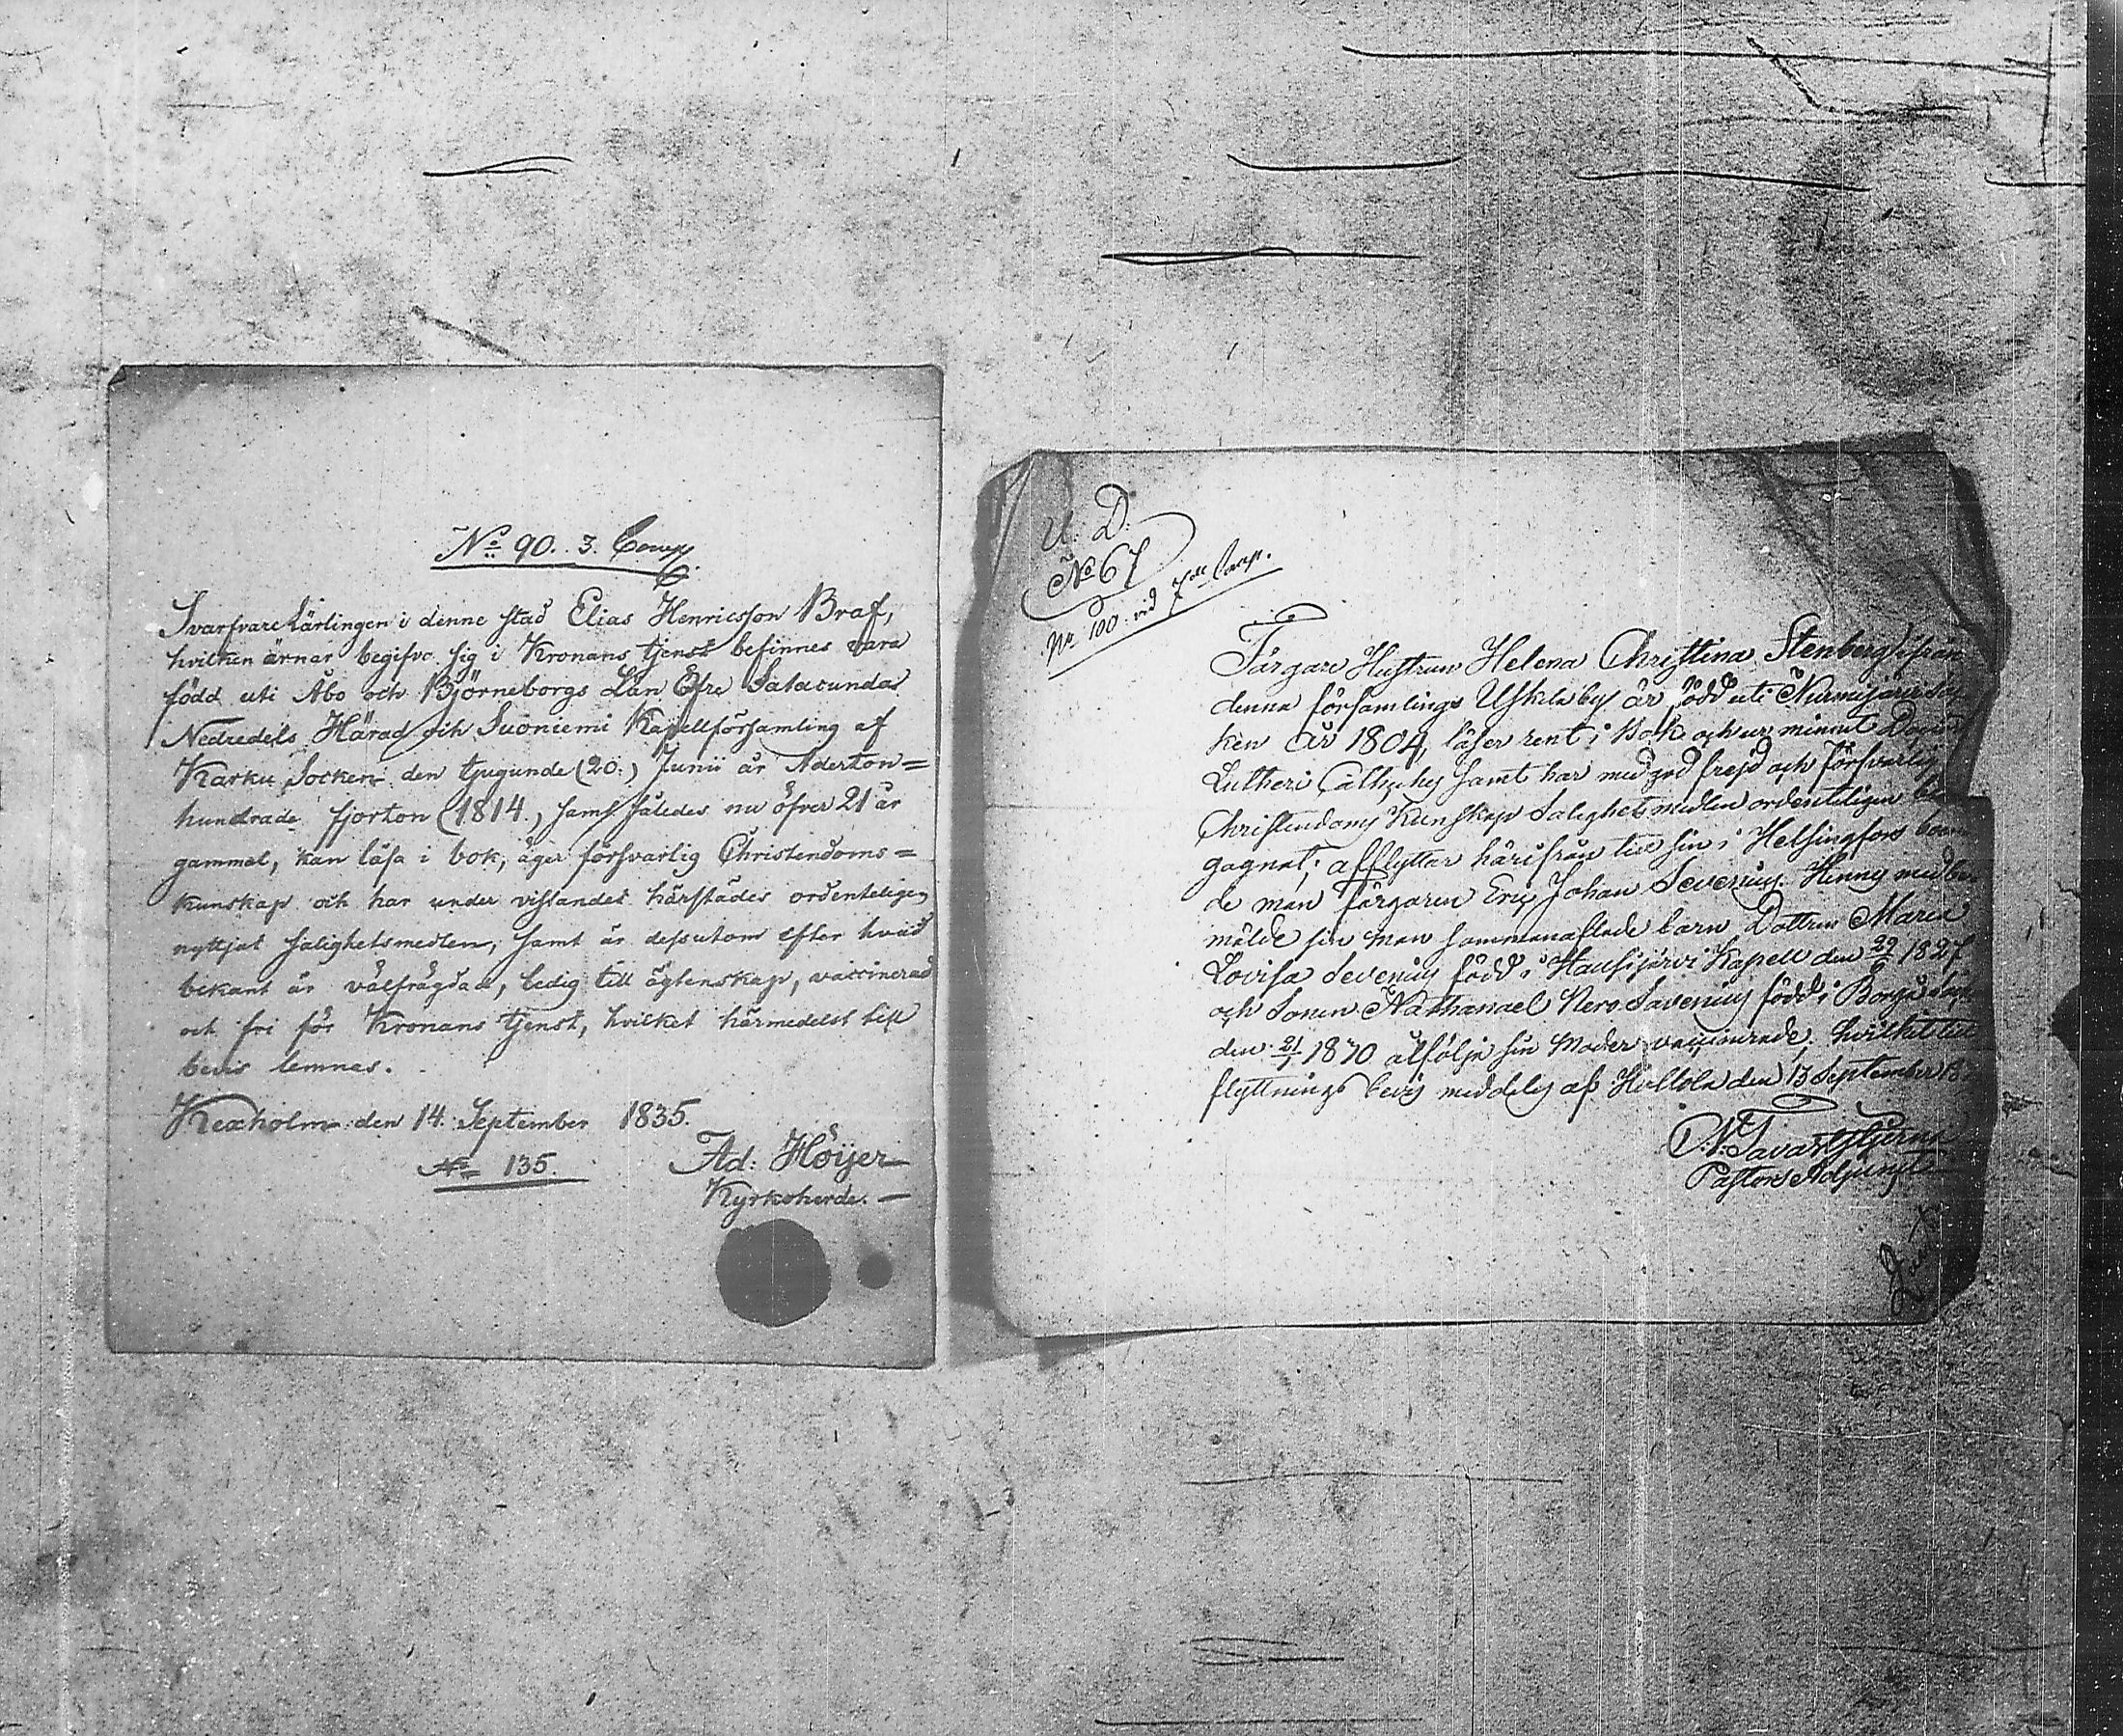 No 90. 3. Comp.
Svarfvare Lärlingen i denne stad Elias Henricsson Braf,
hvilken ärnar begifva sig i Kronans tjenst befinnes vara
född uti Åbo och Björneborgs Län Öfre Satacundas
Nedredels Härad och Suoniemi Kapellförsamling af
Karku Socken den tjugunde (20.) Junii år Aderton=
hundrade fjorton (1814.), samt således nu öfver 21 år
gammal, kan läsa i bok, äger försvarlig Christendoms=
kunskap och har under vistandet härstädes ordenteligen
nyttjat salighetsmedlen, samt är dessutom efter hvad
bekant är välfrägdad, ledig till ägtenskap, vaccinerad
och fri för Kronans tjenst, hvilket härmedelst till
bevis lemnas.
Kexholm den 14. September 1835.
No 135.
Ad: Höijer
Kyrkoherde.
U. D.
No 67
No 100. vid 7de Comp.
Färgare Hustrun Helena Christina Stenberg ifrån
denna församlings Uskila by är född uti Nurmijärvi
ken år 1804, läser rent i bok och ur minnet
Lutheri Cathches samt har med god frejd och försvarlig
Christendoms Kunskap Salighetsmedlen ordenteligen
gagnat; afflyttar härifrån till sin i Helsingfors
de man färgaren Eric Johan Sevenius. Hennes medbe-
mälde sin man sammanaflade barn Dottren Maria
Lovisa Sevenius född i Hausijärvi Kapell den 29/6 1827
och Sonen Nathanael Nero Savenius född i Borgå
den 21/1 1830 åtfölja sin Moder, vaccinerade; hvilket till
flyttnings bevis meddeles af Hollola den 13 September
N. Tavaststjerna
Pastors Adjunct